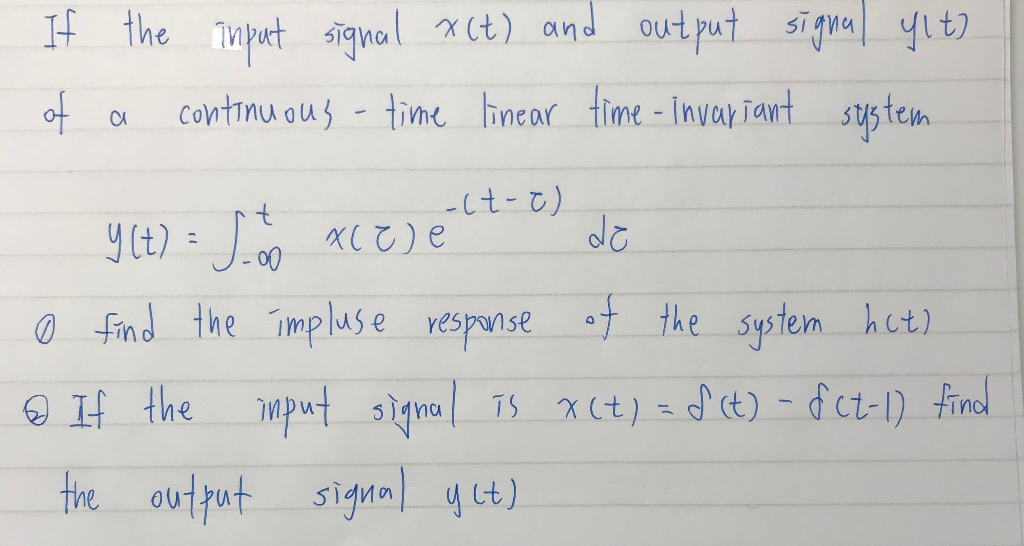 If the input signal x(t) and output signal y(t)
of a continuous - time linear time - invariant system
y(t) = ∫_{-∞}^{t} x(τ) e^{-(t-τ)} dτ
① find the impluse response of the system h(t)
② If the input signal is x(t) = δ(t) - δ(t-1) find
the output signal y(t)